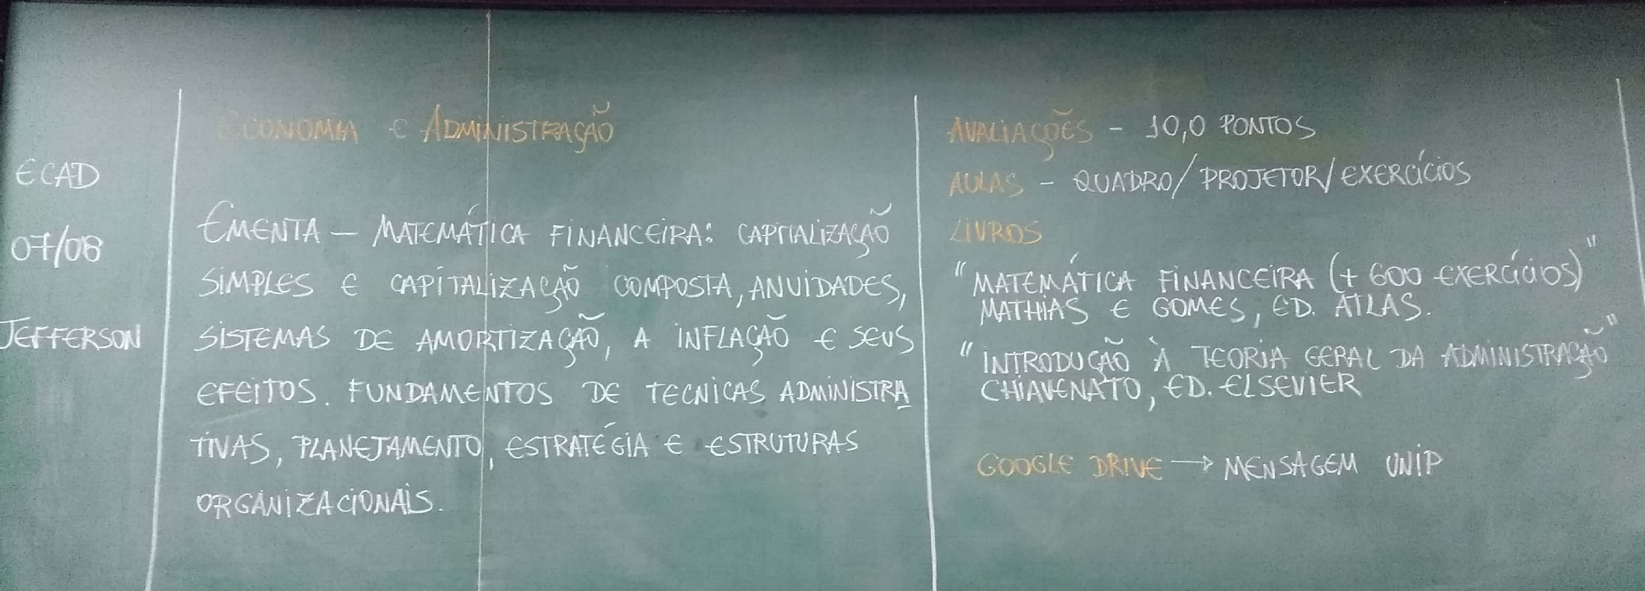 ECAD
07/08
JEFFERSON
ECONOMIA E ADMINISTRAÇÃO
EMENTA – MATEMÁTICA FINANCEIRA: CAPITALIZAÇÃO
SIMPLES E CAPITALIZAÇÃO COMPOSTA, ANUIDADES,
SISTEMAS DE AMORTIZAÇÃO, A INFLAÇÃO E SEUS
EFEITOS. FUNDAMENTOS DE TECNICAS ADMINISTRA
TIVAS, PLANEJAMENTO, ESTRATÉGIA E ESTRUTURAS
ORGANIZACIONAIS.
AVALIAÇÕES - 10,0 PONTOS
AULAS - QUADRO/PROJETOR/EXERCÍCIOS
LIVROS
"MATEMÁTICA FINANCEIRA (+ 600 EXERCÍCIOS)"
MATHIAS E GOMES, ED. ATLAS.
"INTRODUÇÃO À TEORIA GERAL DA ADMINISTRAÇÃO"
CHIAVENATO, ED. ELSEVIER
GOOGLE DRIVE → MENSAGEM UNIP